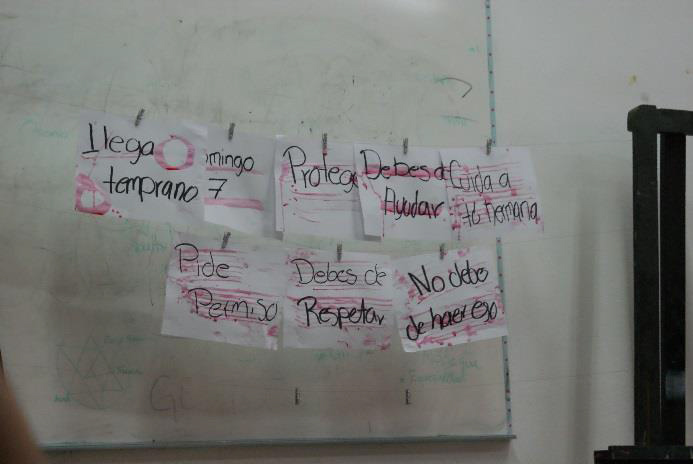 llega
temprano
omingo
7
Protege
Debes de
Ayudar
Cuida a
tú hermana
Pide
Permiso
Debes de
Respetar
No debo
de haer eso